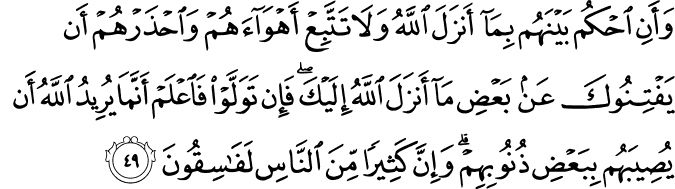 وَأَنِ ٱحۡكُم بَيۡنَهُم بِمَآ أَنزَلَ ٱللَّهُ وَلَا تَتَّبِعۡ أَهۡوَآءَهُمۡ وَٱحۡذَرۡهُمۡ أَن
يَفۡتِنُوكَ عَنۢ بَعۡضِ مَآ أَنزَلَ ٱللَّهُ إِلَيۡكَۖ فَإِن تَوَلَّوۡاْ فَٱعۡلَمۡ أَنَّمَا يُرِيدُ ٱللَّهُ أَن
يُصِيبَهُم بِبَعۡضِ ذُنُوبِهِمۡۗ وَإِنَّ كَثِيرٗا مِّنَ ٱلنَّاسِ لَفَٰسِقُونَ ٤٩